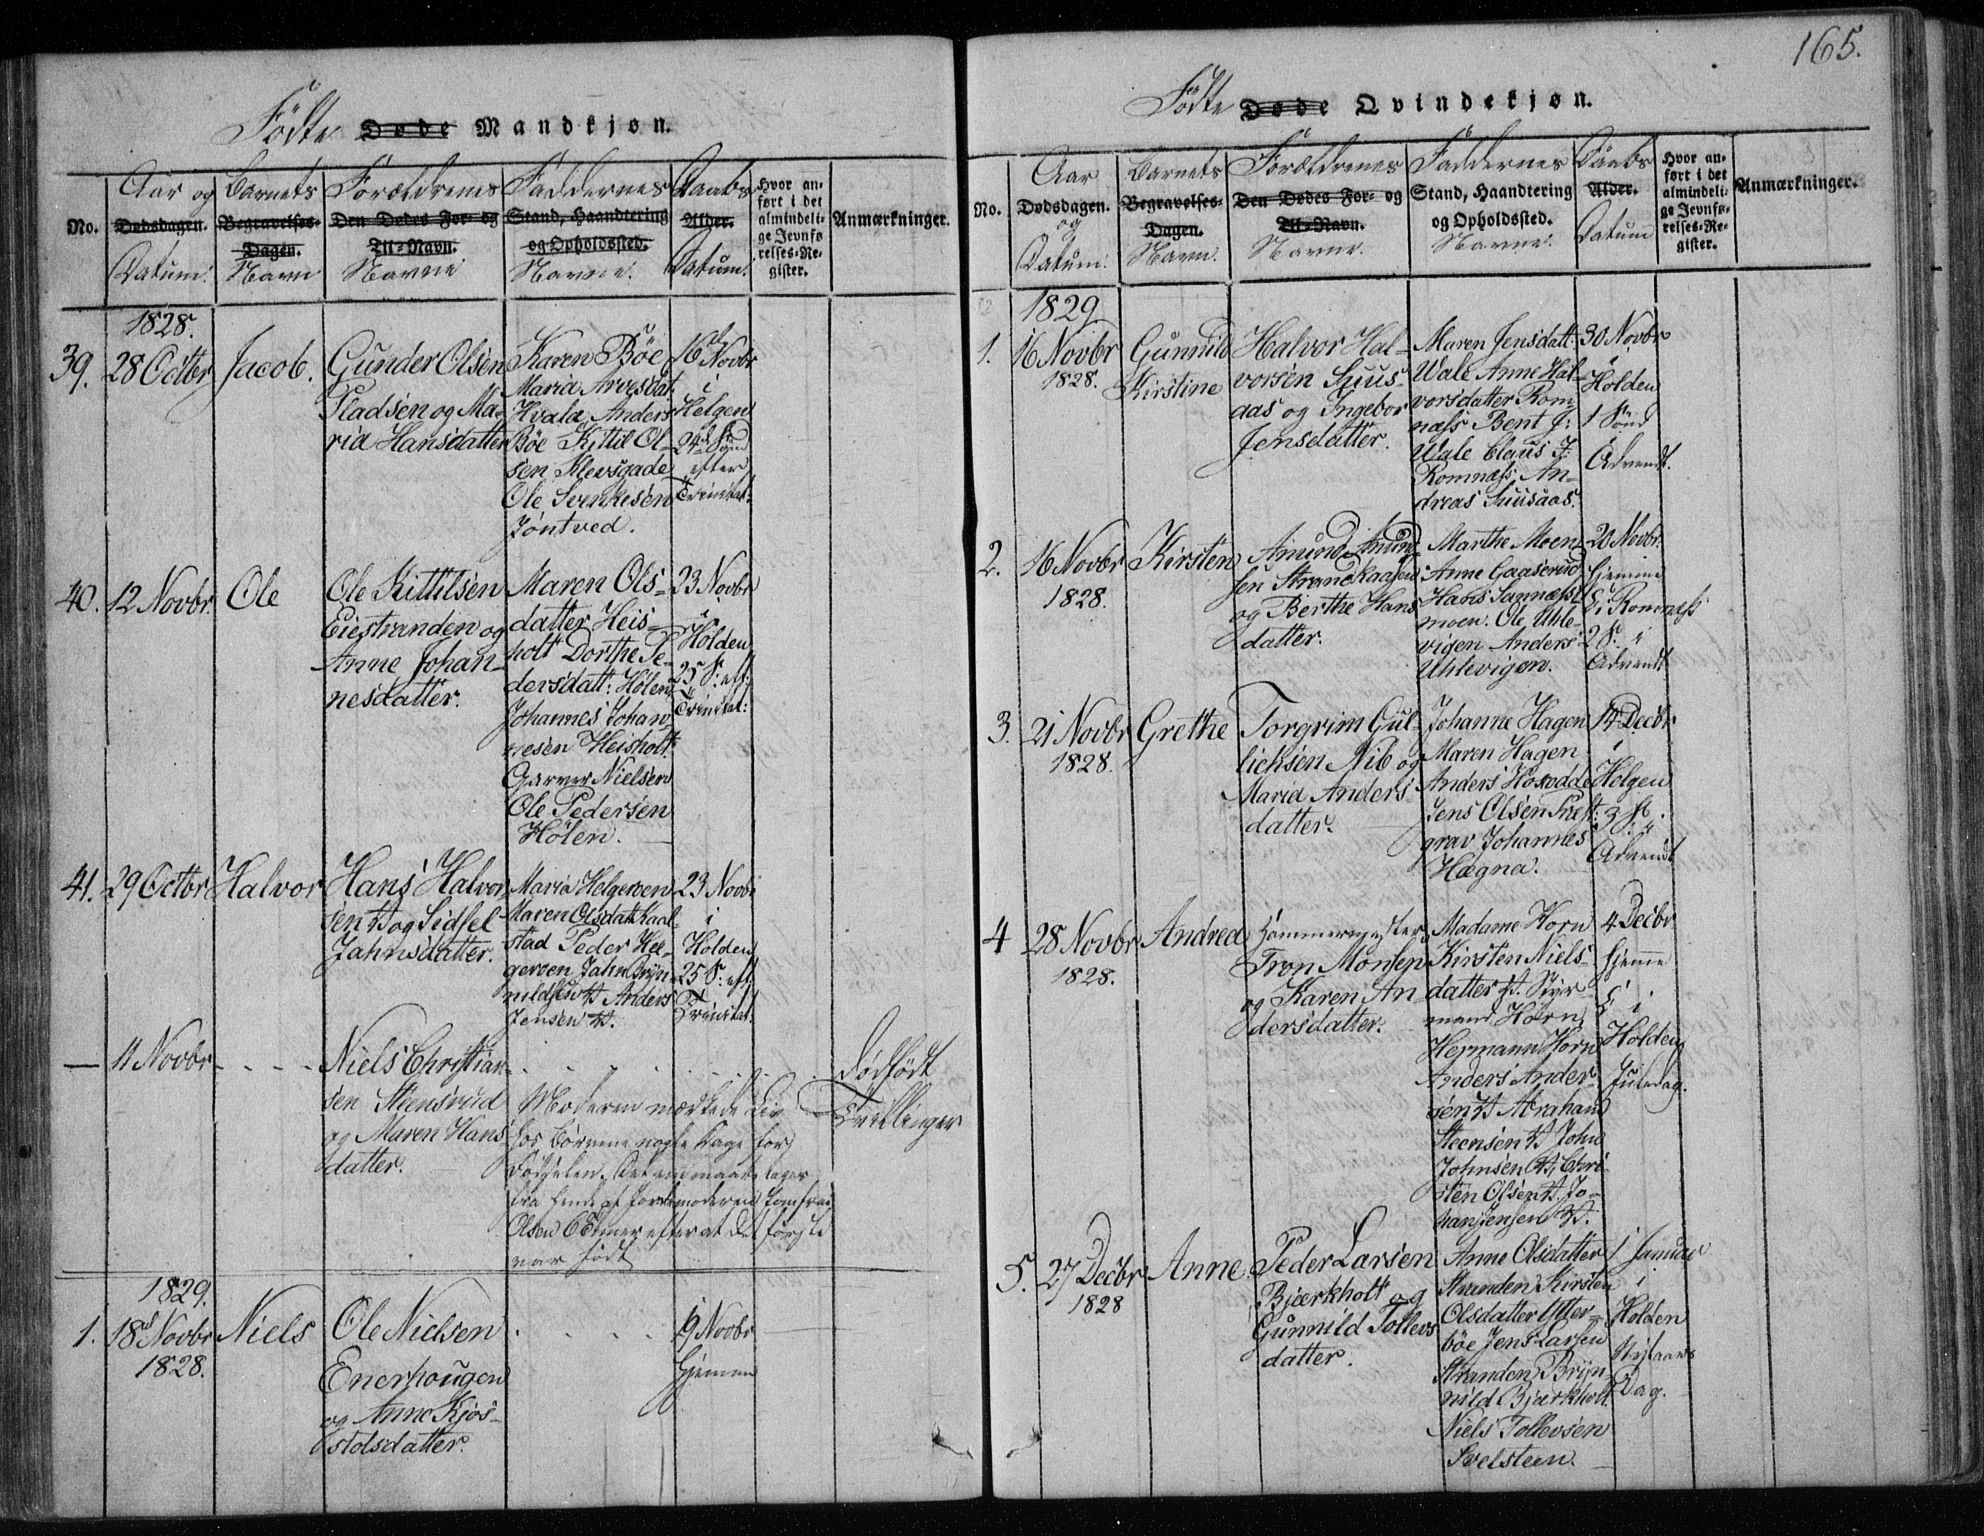 165.
Födte Døde Mandkjøn.
No.
Aar og
Dødsdagen.
Datum.
Barnets
Begravelses-
Dagen.
Navn
Forældrenes
Den Dødes For- og
Til-Navn.
Navne
Faddernes
Stand, Haandtering
og Opholdssted.
Navne.
Daabs
Alder.
Datum.
Hvor an-
ført i det
almindeli-
ge Jevnfø
relses-Re-
gister.
Anmærkninger.
1828.
39.
28 Octbr
Jacob.
Gunder Olsen
Pladsen og Ma-
ria Hansdatter
Karen Böe
Maria Arvesdat
Hvala Anders
Böe Kittil Ol-
sen Klevsgade
Ole Svenkesen
Jöntved.
16 Novbr
i
Helgen
24de Søn
efter
Trinitat:
40.
12 Novbr.
Ole
Ole Kittilsen
Eiestranden og
Anne Johan-
nesdatter.
Maren Ols-
datter Heis-
holt Dorthe Pe-
dersdatt: Hölen
Johannes Johan
nesen Heisholt
Garver Nielsen
Ole Pedersen
Hölen.
23 Novbr
i
Holden
25 S. eft:
Trinitat:
41.
29 Octbr
Halvor
Hans Halvor
sen og Sidsel
Jahnsdatter.
Maria Helgeroen
Maren Olsdatt Kaal-
stad Peder Hel-
geroen Jahn Brÿn-
nildsen Anders
Jensen
23 Novbr
i
Holden
25 S. eft
Trinitat.
11 Novbr
Niels Christian-
sen Steensrud
og Maren Hans
datter.
Moderen mærkede Liv
hos Börnene nogle Dage for
Födselen. Det
Olsen 6 Timer efter at det förste
var födt
Dödfödt
Tvillinger
1829.
1.
18 Novbr
1828.
Niels
Ole Nielsen
Enerhougen
og Anne Kjös-
stolsdatter.
19 Novbr
Hjemme
Födte Døde Qvindekjøn.
No.
Aar
Dødsdagen.
og
Datum.
Barnets
Begravelses-
Dagen.
Navn.
Forældrenes
Den Dødes For- og
Til-Navn.
Navne.
Faddernes
Stand, Haandtering
og Opholdssted.
Navne.
Daabs
Alder.
Datum
Hvor an-
ført i det
almindeli-
ge Jevnfø-
relses-Re-
gister.
Anmærkninger.
1829
1.
16 Novbr
1828.
Gunnild
Kirstine
Halvor Hal-
vorsen Suus-
aas og Ingebor
Jensdatter.
Maren Jensdatt:
Wale Anne Hal-
vorsdatter Rom
næss Bent J:
Wale Claus J:
Romnæss An-
dreas Suusaas.
30 Novbr
i
Holden
1 Sönd
Advendt.
2.
16 Novbr
1828.
Kirsten
Amund Amund
sen Strandkaasen
og Berthe Hans
datter.
Marthe Moen
Anne Gaaserud
Hans Sannæss
moen. Ole Uhle-
vigen Anders
Uhlevigen.
20 Novbr.
hjemme
i Romnæss
2 S. i
Advendt
3.
21 Novbr
1828.
Grethe
Torgrim Gul-
lichsen Nib og
Maria Anders-
datter.
Johanne Hagen
Maren Hagen
Anders Hovedde
Jens Olsen Præst
grav Johannes
Hægna.
14 Decbr
i
Helgen
3 S. i
Advendt
4
28 Novbr
1828.
Andrea
Hammermester
Tron Monsen
og Karen An
dersdatter.
Madame Horn
Kirsten Niels-
datter Stÿr-
mand Horn
Hermann Horn
Anders Ander-
sen Abraham
Steensen John
Johnsen Chri-
sten Olsen Jo-
han Jensen
4 Decbr
hjemme
i
Holden
Juledag.
5.
27 Decbr
1828
Anne
Peder Larsen
Bjerkholt og
Gunnild Tollevs
datter.
Anne Olsdatter
Stranden Kirsten
Olsdatter Ytter-
böe Jens Larsen
Stranden Brÿn-
nild Bjærkholt
Niels Tollevsen
Svelsteen.
1 Januar
i
Holden
Nÿtaars
Dag.